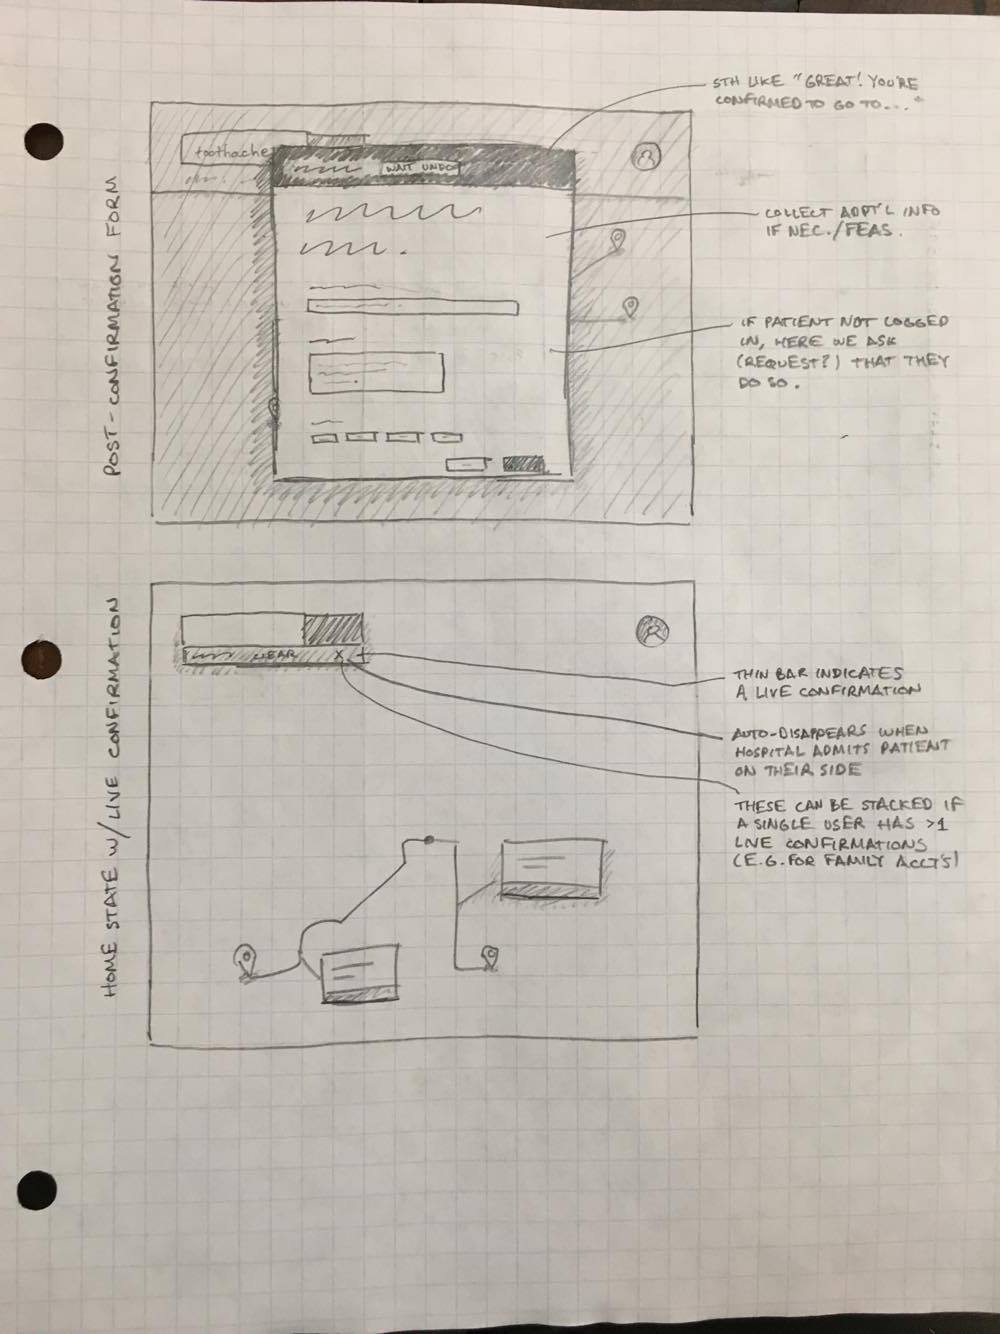 STH LIKE "GREAT! YOU'RE
CONFIRMED TO GO TO..."
POST-CONFIRMATION FORM
toothache
WAIT UNDO
COLLECT ADDT'L INFO
IF NEC./FEAS.
IF PATIENT NOT LOGGED
IN, HERE WE ASK
(REQUEST?) THAT THEY
DO SO.
HOME STATE W/ LIVE CONFIRMATION
X
THIN BAR INDICATES
A LIVE CONFIRMATION
AUTO-DISAPPEARS WHEN
HOSPITAL ADMITS PATIENT
ON THEIR SIDE
THESE CAN BE STACKED IF
A SINGLE USER HAS >1
LIVE CONFIRMATIONS
(E.G. FOR FAMILY ACCT'S)